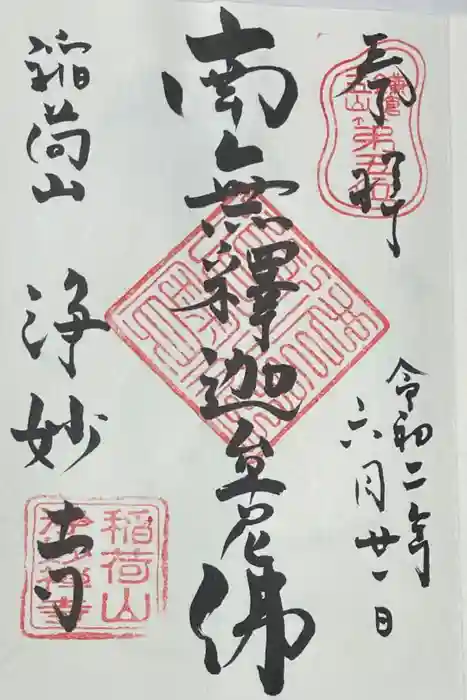 奉拝
鎌倉
五山
第五位
令和二年
六月廿一日
南無釋迦牟尼佛
稲荷山
浄妙寺
稲荷山
浄妙禅寺